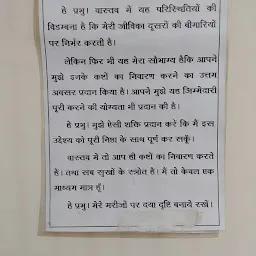 हे प्रभु! वास्तव में यह परिस्थितियों की
विडम्बना है कि मेरी जीविका दूसरों की बीमारियों
पर निर्भर करती है।
लेकिन फिर भी यह मेरा सौभाग्य हैकि आपने
मुझे इनके कष्टों का निवारण करने का उत्तम
अवसर प्रदान किया है। आपने मुझे यह जिम्मेदारी
पूरी करने की योग्यता भी प्रदान की है।
हे प्रभु! मुझे ऐसी शक्ति प्रदान करे कि मैं इस
उद्देश्य को पूरी निष्ठा के साथ पूर्ण कर सकूँ।
वास्तव में तो आप ही कष्टों का निवारण करते
है। तथा सब सुखों के स्त्रोत है। मैं तो केवल एक
माध्यम मात्र हूँ।
हे प्रभु! मेरे मरीजों पर दया दृष्टि बनाये रखे।